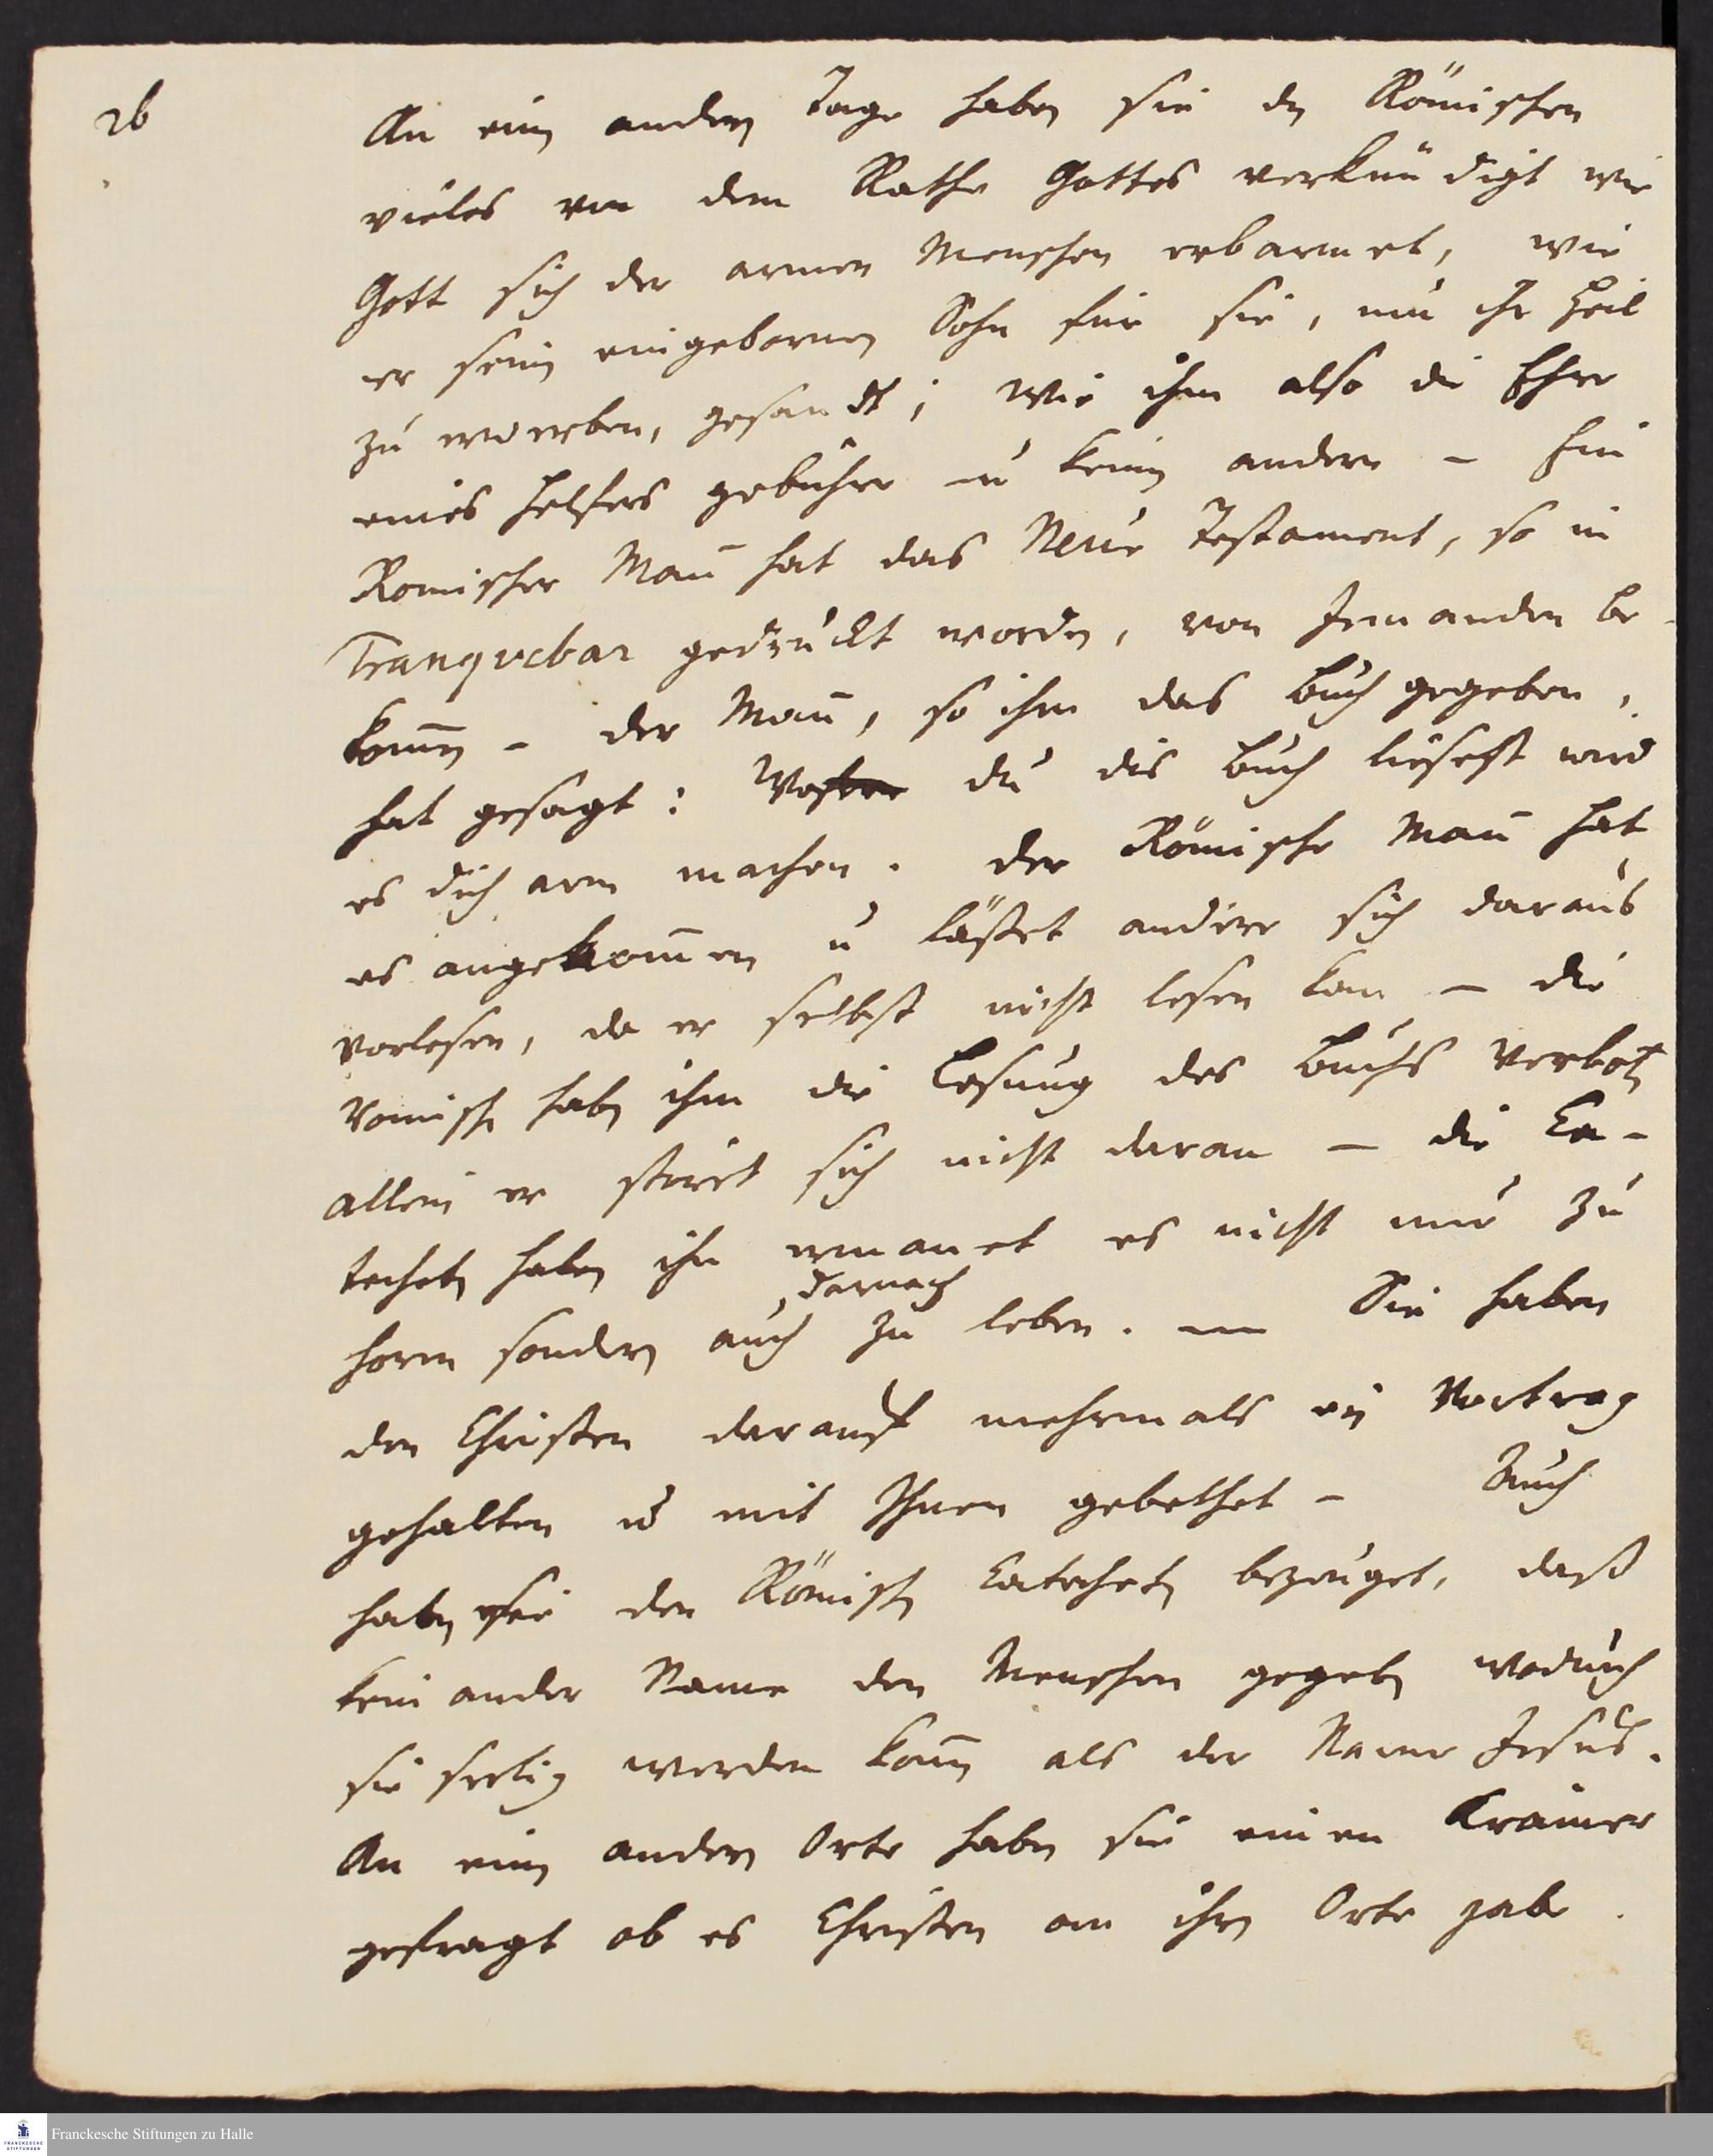 26
An ein andern Tage haben sie dn Römischen
vieles von dem Rathe Gottes verkündigt wie
Gott sich der armen Menschen erbarmet, wie
er sein eingebornen Sohn für sie, um ihr Heil
zu erwerben, gesandt; wie ihm also die Ehre
eines Helfers gebühre u keinen andern - Ein
Romischer Man̄ hat das Neue Testament, so in
Tranquebar gedruckt worden, von Jemanden be-
kom̄en - der Man̄, so ihm das Buch gegeben,
hat gesagt: Wo du dis Buch liesest wird
es dich arm machen. der Römische Man̄ hat
es angenom̄en u läßet andere sich daraus
vorlesen, da er selbst nicht lesen kan - die
Römisch haben ihm die Lesung des Buchs verboten
allein er störet sich nicht daran - die Ca-
techeten haben ihn ermanet es nicht nur zu
hören sondern auch darnach zu leben. - Sie haben
den Christen darauf mehrmals ein Vortrag
gehalten u mit Ihnen gebethet - Auch
haben sie den Römisch Catecheten bezeuget, daß
kein ander Name den Menschen gegeben wodurch
sie seelig werden kön̄en als der Name Jesus.
An ein andern Orte haben sie einen Krämer
gefragt ob es Christen an ihrn Orte gäbe.
Franckesche Stiftungen zu Halle
FRANCKESCHE
STIFTUNGEN